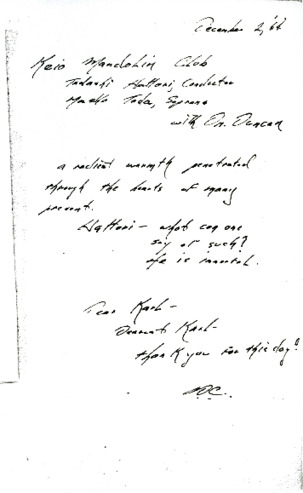 December 2, '66
Keio Mandolin Club
Tadashi Hattori, Conductor
Toda, Soprano
with Dr. Duncan
a radiant warmth penetrated
through the hearts of many
present.
Hattori — what can one
say of such?
He is immortal.
Dear Koch —
Koch —
thank you for this day!